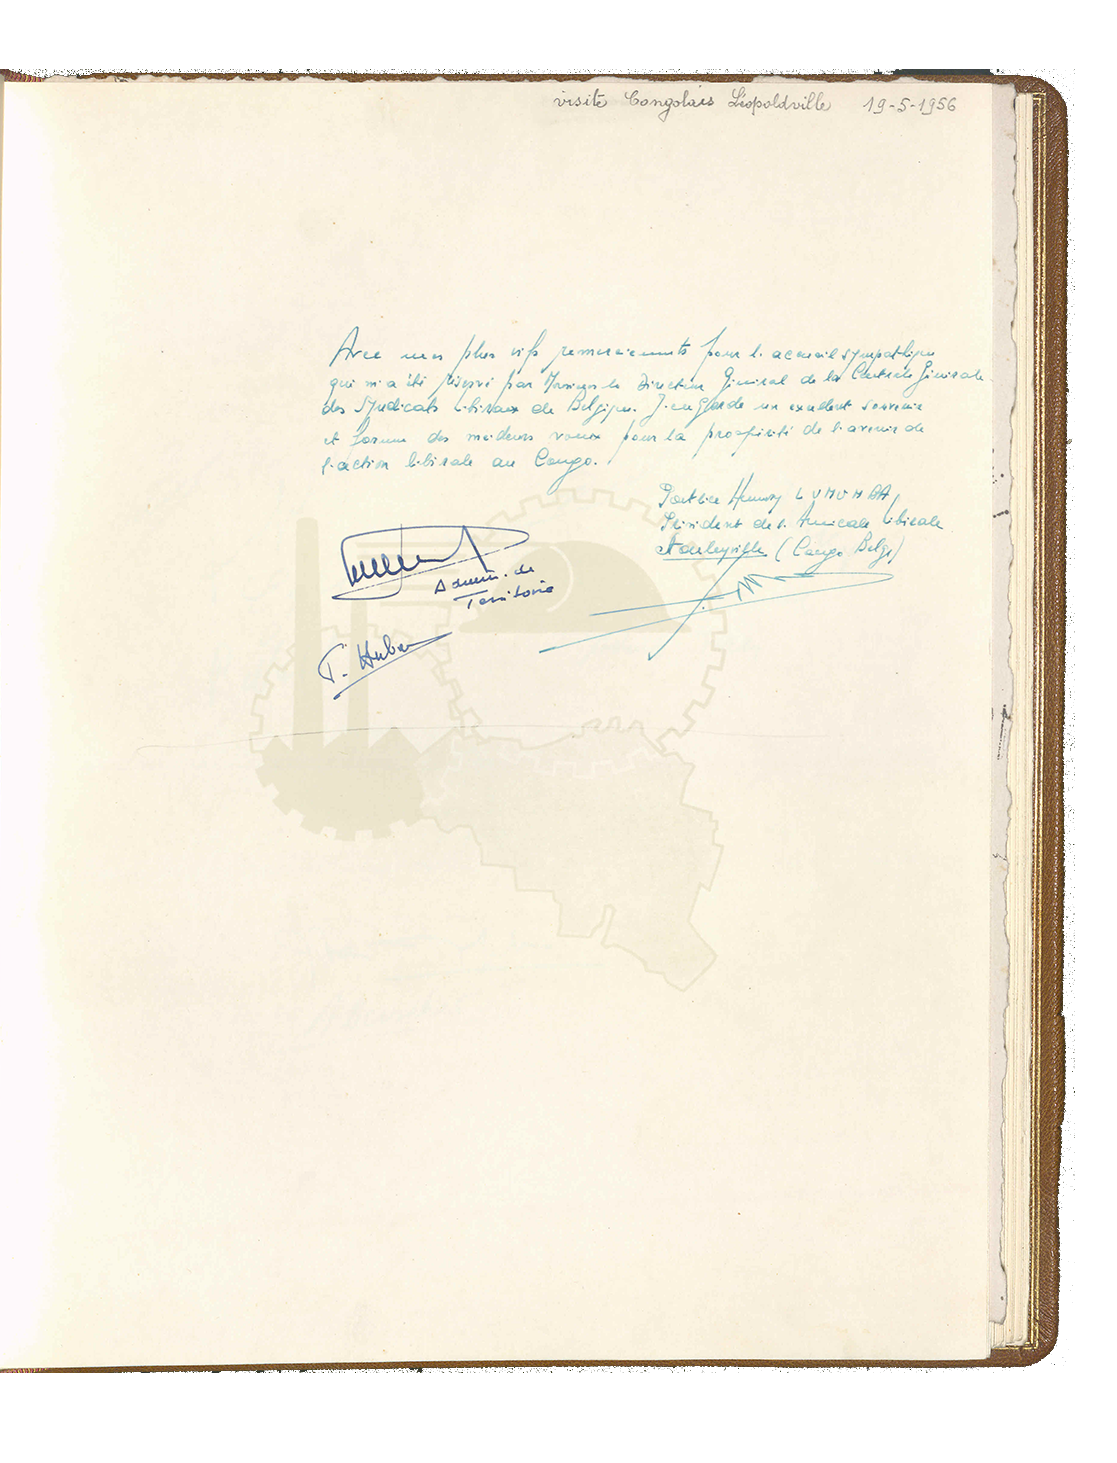 visite Congolais Léopoldville 19-5-1956
Avec mes plus vifs remerciements pour l'accueil sympathique
qui m'a été réservé par Monsieur le Directeur Général de la Centrale Générale
des Syndicats Libéraux de Belgique. J'en garde un excellent souvenir
et forme des meilleurs voeux pour la prospérité de l'avenir de
l'action libérale au Congo.
Patrice Hemery LUMUMBA
Président de l'Amicale libérale
Stanleyville (Congo Belge)
Admin. de
Territoire